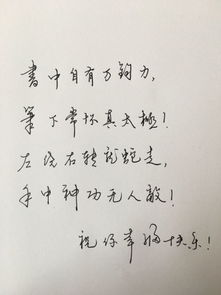 書中自有万鈞力,
筆下常怀真太極!
左浇右转龍蛇走,
手中神功无人敵!
祝你幸福快乐!